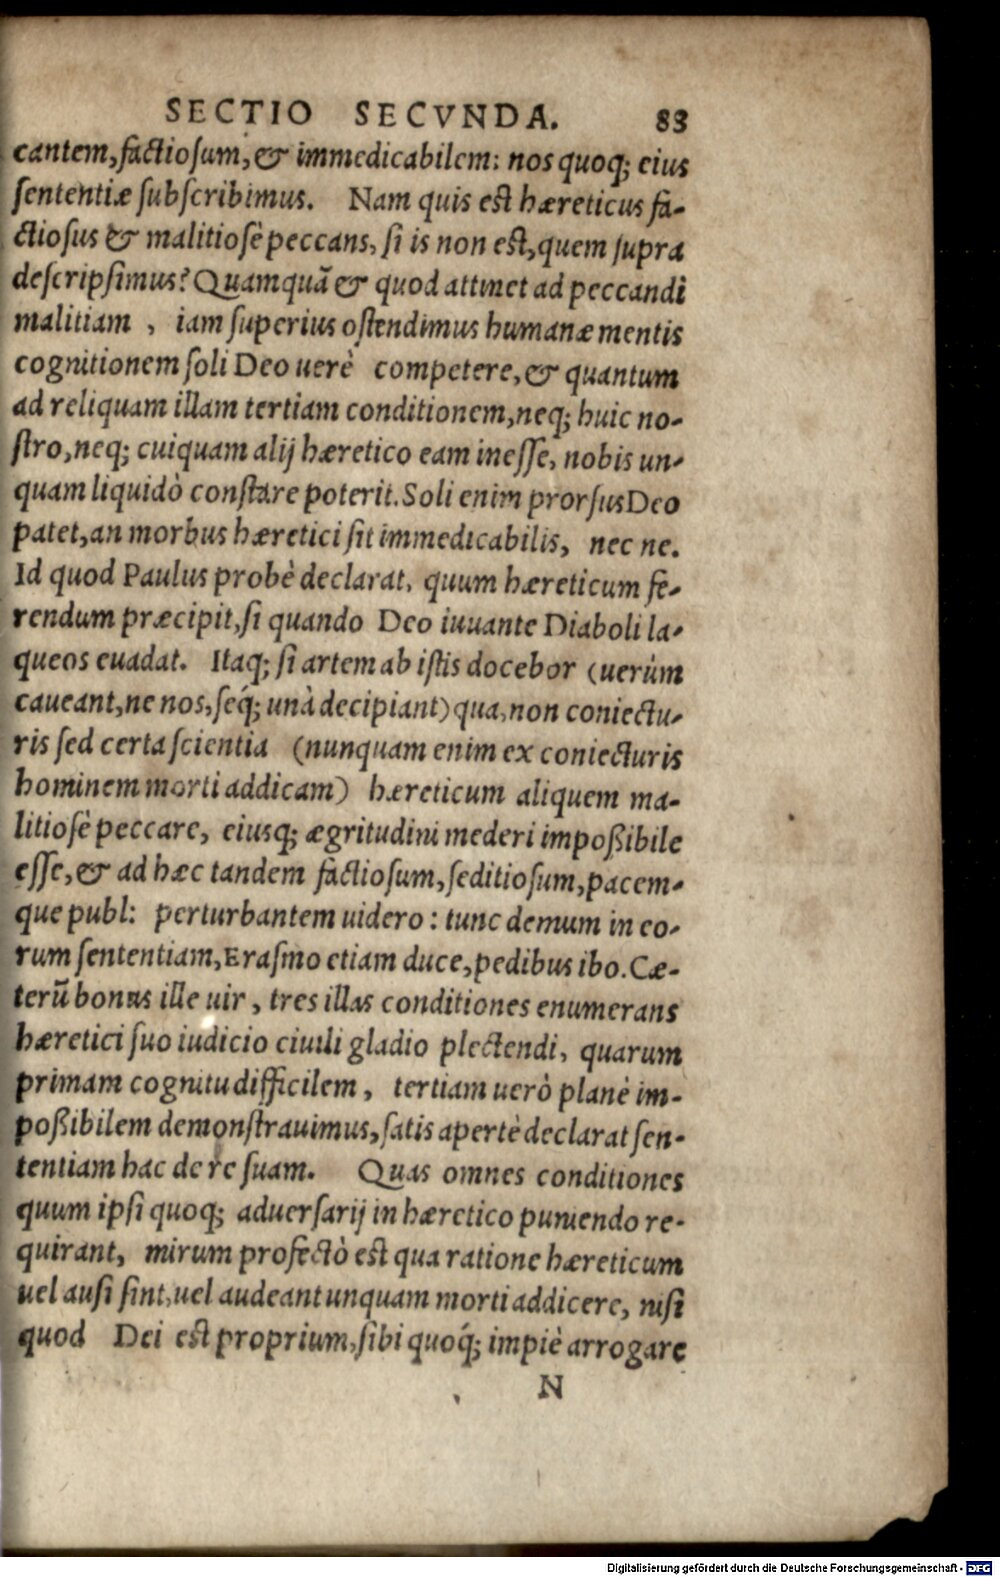 SECTIO SECVNDA. 83
cantem, factiosum, & immedicabilem: nos quoq; eius
sententiæ subscribimus. Nam quis est hæreticus fa-
ctiosus & malitiosè peccans, si is non est, quem supra
descripsimus? Quamquã & quod attinet ad peccandi
malitiam, iam superius ostendimus humanæ mentis
cognitionem soli Deo uerè competere, & quantum
ad reliquam illam tertiam conditionem, neq; huic no-
stro, neq; cuiquam alij hæretico eam inesse, nobis un-
quam liquidò constare poterit. Soli enim prorsus Deo
patet, an morbus hæretici sit immedicabilis, nec ne.
Id quod Paulus probè declarat, quum hæreticum fe-
rendum præcipit, si quando Deo iuuante Diaboli la-
queos euadat. Itaq; si artem ab istis docebor (uerùm
caueant, ne nos, seq́; unà decipiant) qua, non coniectu-
ris sed certa scientia (nunquam enim ex coniecturis
hominem morti addicam) hæreticum aliquem ma-
litiosè peccare, eiusq; ægritudini mederi impoßibile
esse, & ad hæc tandem factiosum, seditiosum, pacem-
que publ: perturbantem uidero: tunc demum in eo-
rum sententiam, Erasmo etiam duce, pedibus ibo. Cæ-
terũ bonus ille uir, tres illas conditiones enumerans
hæretici suo iudicio ciuili gladio plectendi, quarum
primam cognitu difficilem, tertiam uerò planè im-
poßibilem demonstrauimus, satis apertè declarat sen-
tentiam hac de re suam. Quas omnes conditiones
quum ipsi quoq; aduersarij in hæretico puniendo re-
quirant, mirum profectò est qua ratione hæreticum
uel ausi sint, uel audeant unquam morti addicere, nisi
quod Dei est proprium, sibi quoq́; impiè arrogare
N
Digitalisierung gefördert durch die Deutsche Forschungsgemeinschaft - DFG